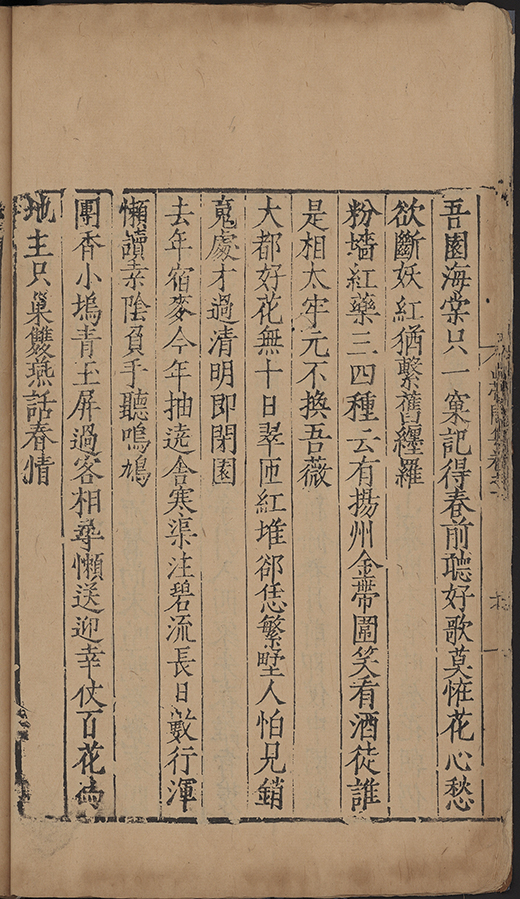 吾園海棠只一窠記得春前聽好歌莫恠花心愁
欲斷妖紅猶繫舊纏羅
粉墻紅藥三四種云有揚州金帶圍笑看酒徒誰
是相太牢元不換吾薇
大都好花無十日翠匝紅堆郤恁繁墅人怕見銷
䰟處才過清明即閉園
去年宿麥今年抽遶舍寒渠注碧流長日數行渾
懶讀素陰負手聽鳴鳩
團香小塢青玉屏過客相尋懶送迎幸仗百花為
地主只巢雙燕話春情